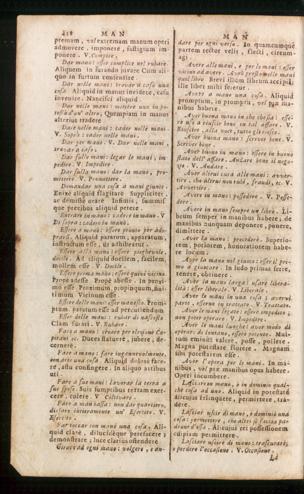 418 MAN
premam, vel extremam manum operi
admovere, imponere, fastigium im-
ponere. V. Compiere.
Dar mano: esser complice nel rubare.
Aliquem in furando juvare Cum ali-
quo in furtum consentire.
Dar nelle mani: trovar a caso una
cosa. Aliquid in manus incidere, casu
invenire. Nancisci aliquid.
Dar nelle mani: mettere uno in po-
testà d'un altro. Quempiam in manus
alterius tradere
Dare nelle mani: cader nelle mani.
V. cader nelle mani.
Dar per mani. V. Dar nelle mani,
trovar a caso.
Dar sulle mani: legar le mani, im-
pedire. V. Impedire
Dar sulla mano: dar la mano, pro-
mettere. V. Promettere.
Domandar una cosa a mani giunte.
Enixe aliquid flagitare Suppliciter,
ac demisse orare
que precibus aliquid petere
Entrare in mano: cadere in mano. V
Essere a mano: essere pronto per ado-
prarsi. Aliquid paratum, apparatum,
instructum esse,
Essere alla mano: essere piacevole,
docile. Ad aliquid docilem, facilem,
mollem esse. V. Docile.
Essere prima mano: essere quivi vicino.
Prope adesse. Prope abesse. In proxi-
mo esse Proximum, propinquum, fini-
timum Vicinum esse.
Essere delle mani: esser manesco. Prom-
ptum paratum esse ad percutiendum
Esser delle mani: rubar di nascosto
Clam surripi. V. Rubare.
Fare a mano: essere per elezione Ca-
pitani &c. Duces statuere, jubere, de-
cernere.
Fare a mano: fare ingannevolmente,
con arte una cosa. Aliquid dolosè face-
re, astu confingere. In aliquo artibus
uti.
Fare a sue mani: lavorar la terra a
sue spese. Suis sumptibus terram exer-
cere, colere. V Coltivare.
Fare a man salva: non dar quartiere,
disfare interamente un' Esercito. V.
Esercito.
Far toccar con mani una cosa. Ali-
quid clarè, dilucideque patefacere;
demonstrare; luce clarius ostendere
Girarsi ad ogni mano: volgere, e an-
MAN
dare per ogni verso. In quamcumque
partem sectae velis, flecti, circum-
agi.
Avere alle mani, e per le mani: esser
vicino ad avere. Avrò presto nelle mani
quel libro Brevi illum librum accipiá.
Ille liber mihi feretur.
Avere a mano una cosa. Aliquid
promptum, in promptu, vel prae ma-
nibus habere.
Aver buona mano in che che sia: esse-
re uso a riuscir bene in tal affare. V.
Riuscire. Alla voce, tutto gli riesce.
Aver buona mano: scriver bene. V.
Scriver bene
Aver buono in mano: essere in buono
stato dell'affare. Andare bene il nego-
zio V. Andare
Aver altrui cura alle mani: avverti-
re, che altri non rubi, fraudi, &c. V.
Avvertire.
Avere in mano: possedere. V. Posse-
dere.
Avere in mano sempre un libro. Li-
brum semper in manibus habere, de
manibus nunquam deponere, ponere,
dimittere.
Aver la mano: precedere. Superio-
rem, potiorem, honoratiorem habe-
re locum.
Aver la mano nel giuoco: esser il pri-
mo a giuocare In ludo primas ferre,
tenere, obtinere.
Aver le mani larghe: essere liberali-
tà: esser liberale. V. Liberale.
Aver le mani in una cosa: avervi
parte, esserne in trattato V. Trattato.
Aver le mani legate: essere impedito a
non poter operare. V. Impedire.
Aver le mani lunghe: aver modo di
operar di lontano, essere potente. Mul-
tum eminùs valere, posse, pollere.
Magna potestate florere. Magnam
sibi potestatem esse.
Aver l'opera per le mani. In ma-
nibus, vel prae manibus opus habere.
Operi incumbere.
Lasciare in mano, e in dominio qual-
chè cosa ad uno. Aliquid in potestate
alicujus relinquere, permittere, tra-
dere.
Lasciar uscir di mano, e dominio una
cosa: permettere, che altri si faccia pa-
drone d'essa. Alicujus rei possessionem
cuipiam permittere.
Lasciare uscire di mano: trascurare,
o perdere l'occasione. V. Occasione.
La